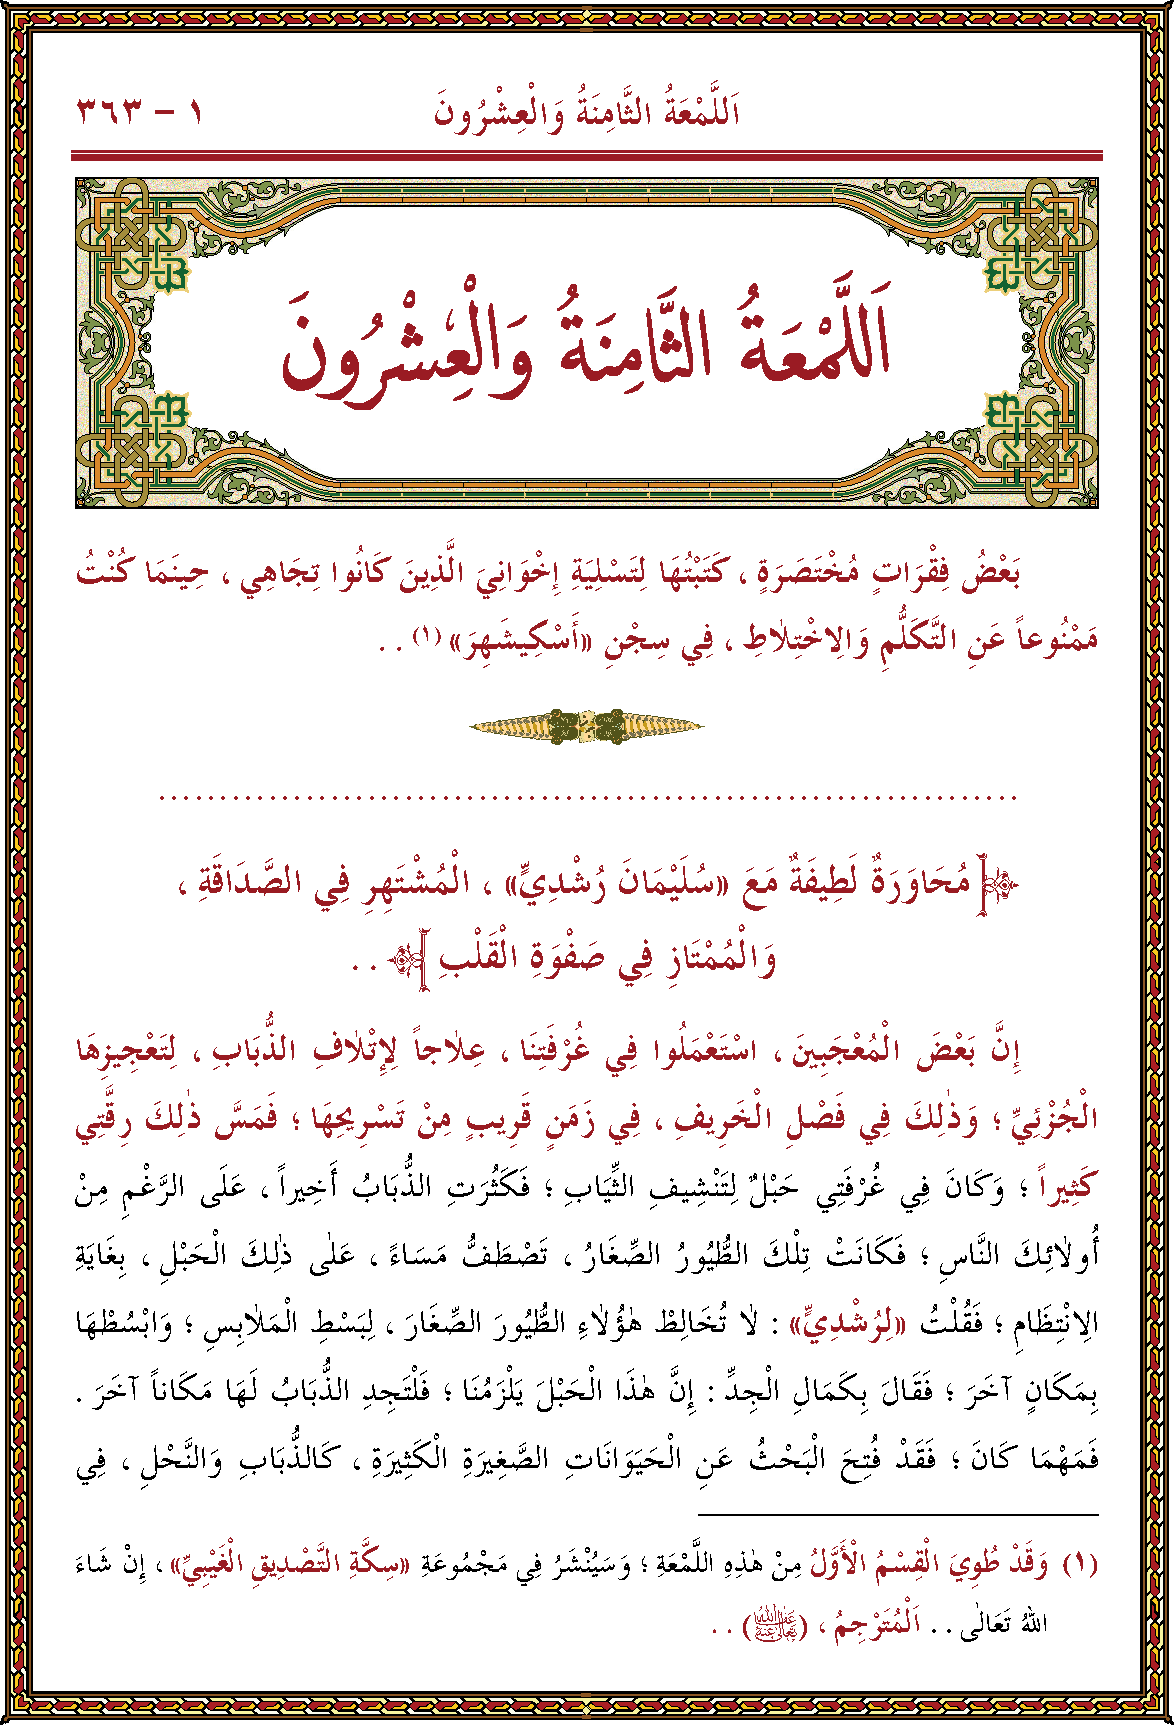 اَللَّمْعَةُ الثَّامِنَةُ وَالْعِشْرُونَ
١ - ٣٦٣
اَللَّمْعَةُ الثَّامِنَةُ وَالْعِشْرُونَ
بَعْضُ فِقْرَاتٍ مُخْتَصَرَةٍ ، كَتَبْتُهَا لِتَسْلِيَةِ إِخْوَانِيَ الَّذِينَ كَانُوا تِجَاهِي ، حِينَمَا كُنْتُ
مَمْنُوعاً عَنِ التَّكَلُّمِ وَالِاخْتِلَاطِ ، فِي سِجْنِ «أَسْكِيشَهِرَ» (١) . .
. . . . . . . . . . . . . . . . . . . . . . . . . . . . . . . . . . . . . . . . . . . . . . . . . . . . . . . . . . . . . . . . . . . . . .
مُحَاوَرَةٌ لَطِيفَةٌ مَعَ «سُلَيْمَانَ رُشْدِيٍّ» ، الْمُشْتَهِرِ فِي الصَّدَاقَةِ ،
وَالْمُمْتَازِ فِي صَفْوَةِ الْقَلْبِ . .
إِنَّ بَعْضَ الْمُعْجَبِينَ ، اسْتَعْمَلُوا فِي غُرْفَتِنَا ، عِلَاجاً لِإِتْلَافِ الذُّبَابِ ، لِتَعْجِيزِهَا
الْجُزْئِيِّ ؛ وَذٰلِكَ فِي فَصْلِ الْخَرِيفِ ، فِي زَمَنٍ قَرِيبٍ مِنْ تَسْرِيحِهَا ؛ فَمَسَّ ذٰلِكَ رِقَّتِي
كَثِيراً ؛ وَكَانَ فِي غُرْفَتِي حَبْلٌ لِتَنْشِيفِ الثِّيَابِ ؛ فَكَثُرَتِ الذُّبَابُ أَخِيراً ، عَلَى الرَّغْمِ مِنْ
أُولٰئِكَ النَّاسِ ؛ فَكَانَتْ تِلْكَ الطُّيُورُ الصِّغَارُ ، تَصْطَفُّ مَسَاءً ، عَلٰى ذٰلِكَ الْحَبْلِ ، بِغَايَةِ
الِانْتِظَامِ ؛ فَقُلْتُ «لِرُشْدِيٍّ» : لَا تُخَالِطْ هٰؤُلَاءِ الطُّيُورَ الصِّغَارَ ، لِبَسْطِ الْمَلَابِسِ ؛ وَابْسُطْهَا
بِمَكَانٍ آخَرَ ؛ فَقَالَ بِكَمَالِ الْجِدِّ : إِنَّ هٰذَا الْحَبْلَ يَلْزَمُنَا ؛ فَلْتَجِدِ الذُّبَابُ لَهَا مَكَاناً آخَرَ .
فَمَهْمَا كَانَ ؛ فَقَدْ فُتِحَ الْبَحْثُ عَنِ الْحَيَوَانَاتِ الصَّغِيرَةِ الْكَثِيرَةِ ، كَالذُّبَابِ وَالنَّحْلِ ، فِي
(١) وَقَدْ طُوِيَ الْقِسْمُ الْأَوَّلُ مِنْ هٰذِهِ اللَّمْعَةِ ؛ وَسَيُنْشَرُ فِي مَجْمُوعَةِ «سِكَّةِ التَّصْدِيقِ الْغَيْبِيِّ» ، إِنْ شَاءَ
اللهُ تَعَالٰى . . اَلْمُتَرْجِمُ ، () . .